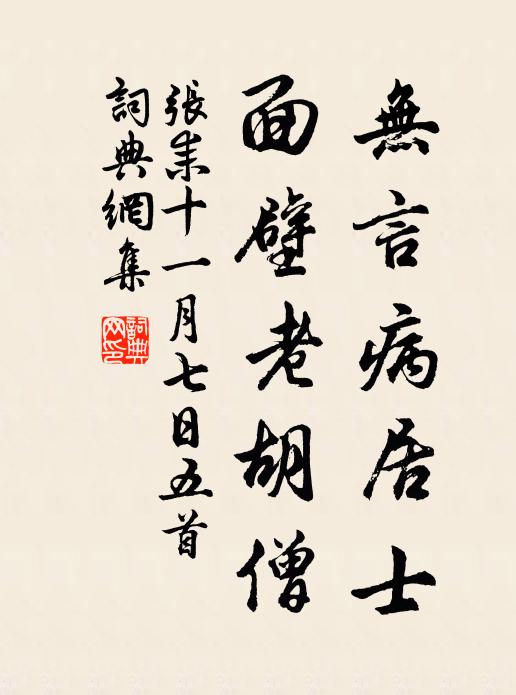 無言病居士
面壁老胡僧
張耒十一月七日五首
詞典網集
詞典
网印